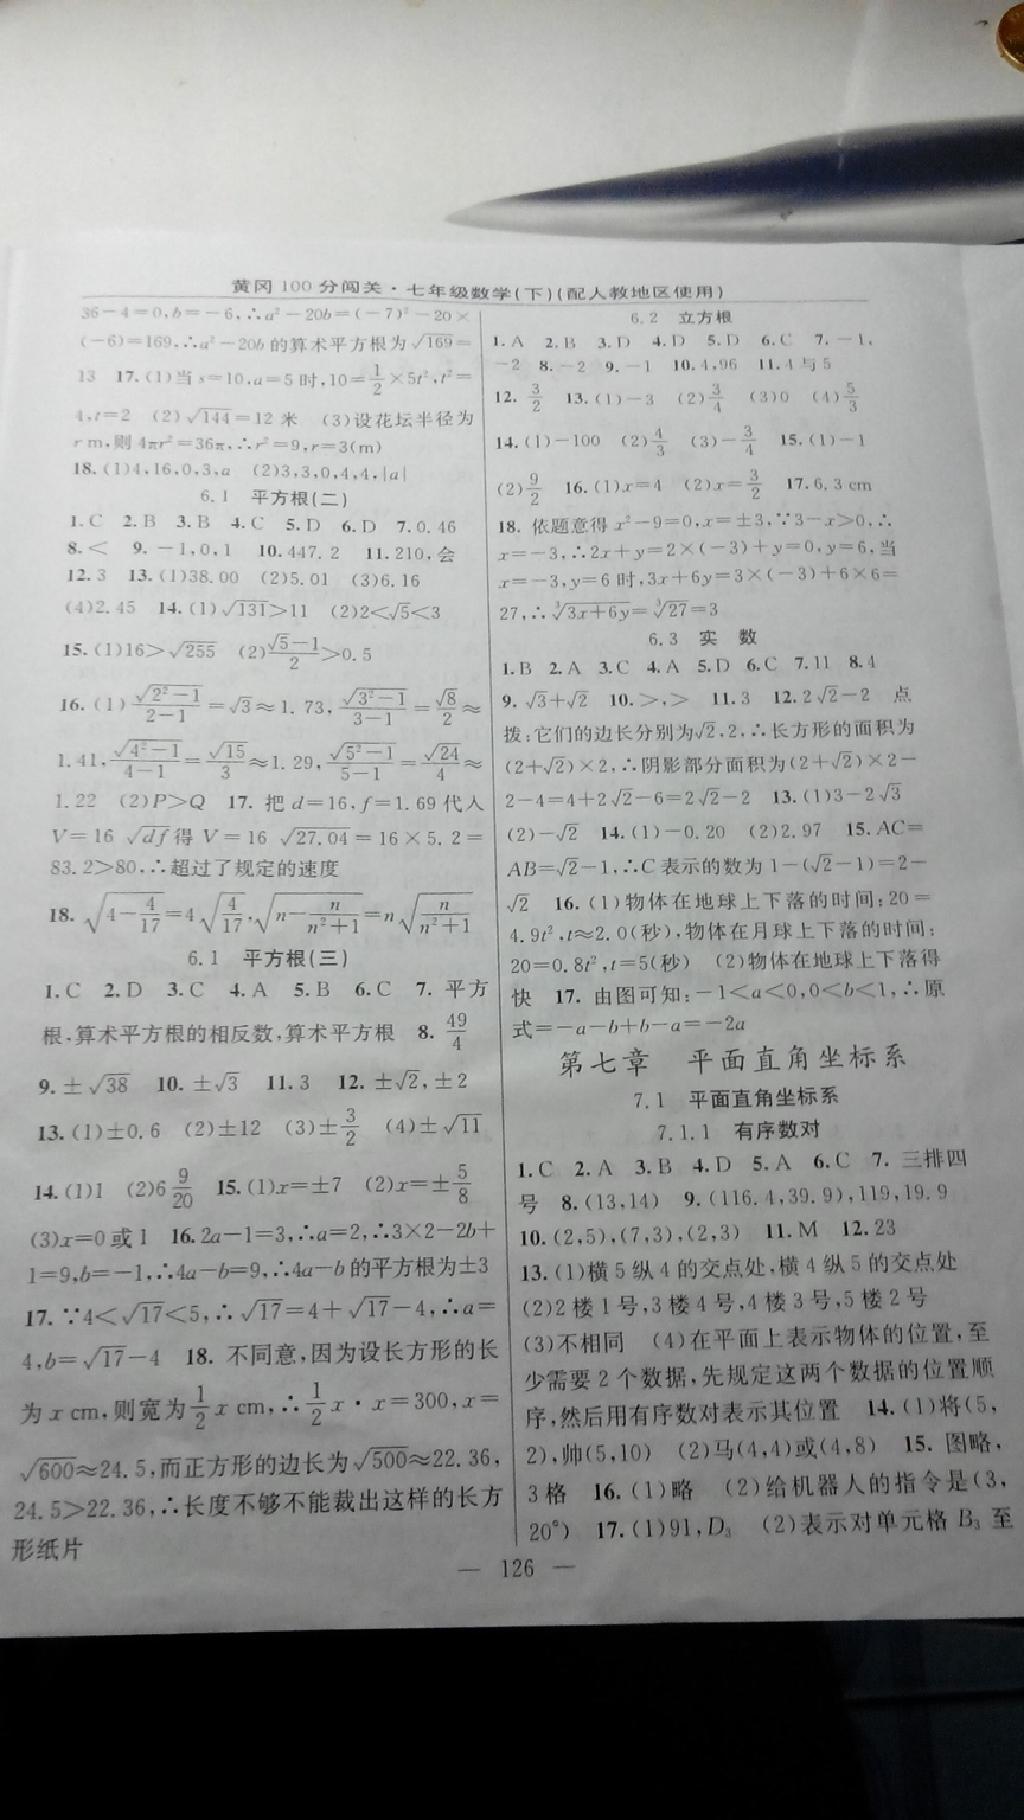 黄冈100分闯关·七年级数学(下)(配人教地区使用)
36-4=0,b=-6,∴a²-20b=(-7)²-20×
(-6)=169,∴a²-20b的算术平方根为√169=
13 17.(1)当s=10,a=5时,10=1/2×5t²,t²=
4,t=2 (2)√144=12米 (3)设花坛半径为
r m,则4πr²=36π,∴r²=9,r=3(m)
18.(1)4,16,0,3,a (2)3,3,0,4,4,|a|
6.1 平方根(二)
1.C 2.B 3.B 4.C 5.D 6.D 7.0.46
8.< 9.-1,0,1 10.447.2 11.210,会
12.3 13.(1)38.00 (2)5.01 (3)6.16
(4)2.45 14.(1)√131>11 (2)2<√5<3
15.(1)16>√255 (2)(√5-1)/2>0.5
16.(1)√(2²-1)/(2-1)=√3≈1.73,√(3²-1)/(3-1)=√8/2≈
1.41,√(4²-1)/(4-1)=√15/3≈1.29,√(5²-1)/(5-1)=√24/4≈
1.22 (2)P>Q 17.把d=16,f=1.69代入
V=16√df得V=16√27.04=16×5.2=
83.2>80,∴超过了规定的速度
18.√(4-4/17)=4√(4/17),√(n-n/(n²+1))=n√(n/(n²+1))
6.1 平方根(三)
1.C 2.D 3.C 4.A 5.B 6.C 7.平方
根,算术平方根的相反数,算术平方根 8.49/4
9.±√38 10.±√3 11.3 12.±√2,±2
13.(1)±0.6 (2)±12 (3)±3/2 (4)±√11
14.(1)1 (2)6 9/20 15.(1)x=±7 (2)x=±5/8
(3)x=0或1 16.2a-1=3,∴a=2,∴3×2-2b+
1=9,b=-1,∴4a-b=9,∴4a-b的平方根为±3
17.∵4<√17<5,∴√17=4+√17-4,∴a=
4,b=√17-4 18.不同意,因为设长方形的长
为x cm,则宽为1/2x cm,∴1/2x·x=300,x=
√600≈24.5,而正方形的边长为√500≈22.36,
24.5>22.36,∴长度不够不能裁出这样的长方
形纸片
6.2 立方根
1.A 2.B 3.D 4.D 5.D 6.C 7.-1,
-2 8.-2 9.-1 10.4,96 11.4与5
12.3/2 13.(1)-3 (2)3/4 (3)0 (4)5/3
14.(1)-100 (2)4/3 (3)-3/4 15.(1)-1
(2)9/2 16.(1)x=4 (2)x=3/2 17.6,3 cm
18.依题意得x²-9=0,x=±3,∵3-x>0,∴
x=-3,∴2x+y=2×(-3)+y=0,y=6,当
x=-3,y=6时,3x+6y=3×(-3)+6×6=
27,∴∛(3x+6y)=∛27=3
6.3 实 数
1.B 2.A 3.C 4.A 5.D 6.C 7.11 8.4
9.√3+√2 10.>,> 11.3 12.2√2-2 点
拨:它们的边长分别为√2,2,∴长方形的面积为
(2+√2)×2,∴阴影部分面积为(2+√2)×2-
2-4=4+2√2-6=2√2-2 13.(1)3-2√3
(2)-√2 14.(1)-0.20 (2)2.97 15.AC=
AB=√2-1,∴C表示的数为1-(√2-1)=2-
√2 16.(1)物体在地球上下落的时间:20=
4.9t²,t≈2.0(秒),物体在月球上下落的时间:
20=0.8t²,t=5(秒) (2)物体在地球上下落得
快 17.由图可知:-1<a<0,0<b<1,∴原
式=-a-b+b-a=-2a
第七章 平面直角坐标系
7.1 平面直角坐标系
7.1.1 有序数对
1.C 2.A 3.B 4.D 5.A 6.C 7.三排四
号 8.(13,14) 9.(116.4,39.9),119,19.9
10.(2,5),(7,3),(2,3) 11.M 12.23
13.(1)横5纵4的交点处,横4纵5的交点处
(2)2楼1号,3楼4号,4楼3号,5楼2号
(3)不相同 (4)在平面上表示物体的位置,至
少需要2个数据,先规定这两个数据的位置顺
序,然后用有序数对表示其位置 14.(1)将(5,
2),帅(5,10) (2)马(4,4)或(4,8) 15.图略,
3格 16.(1)略 (2)给机器人的指令是(3,
20°) 17.(1)91,D₃ (2)表示对单元格B₃至
— 126 —